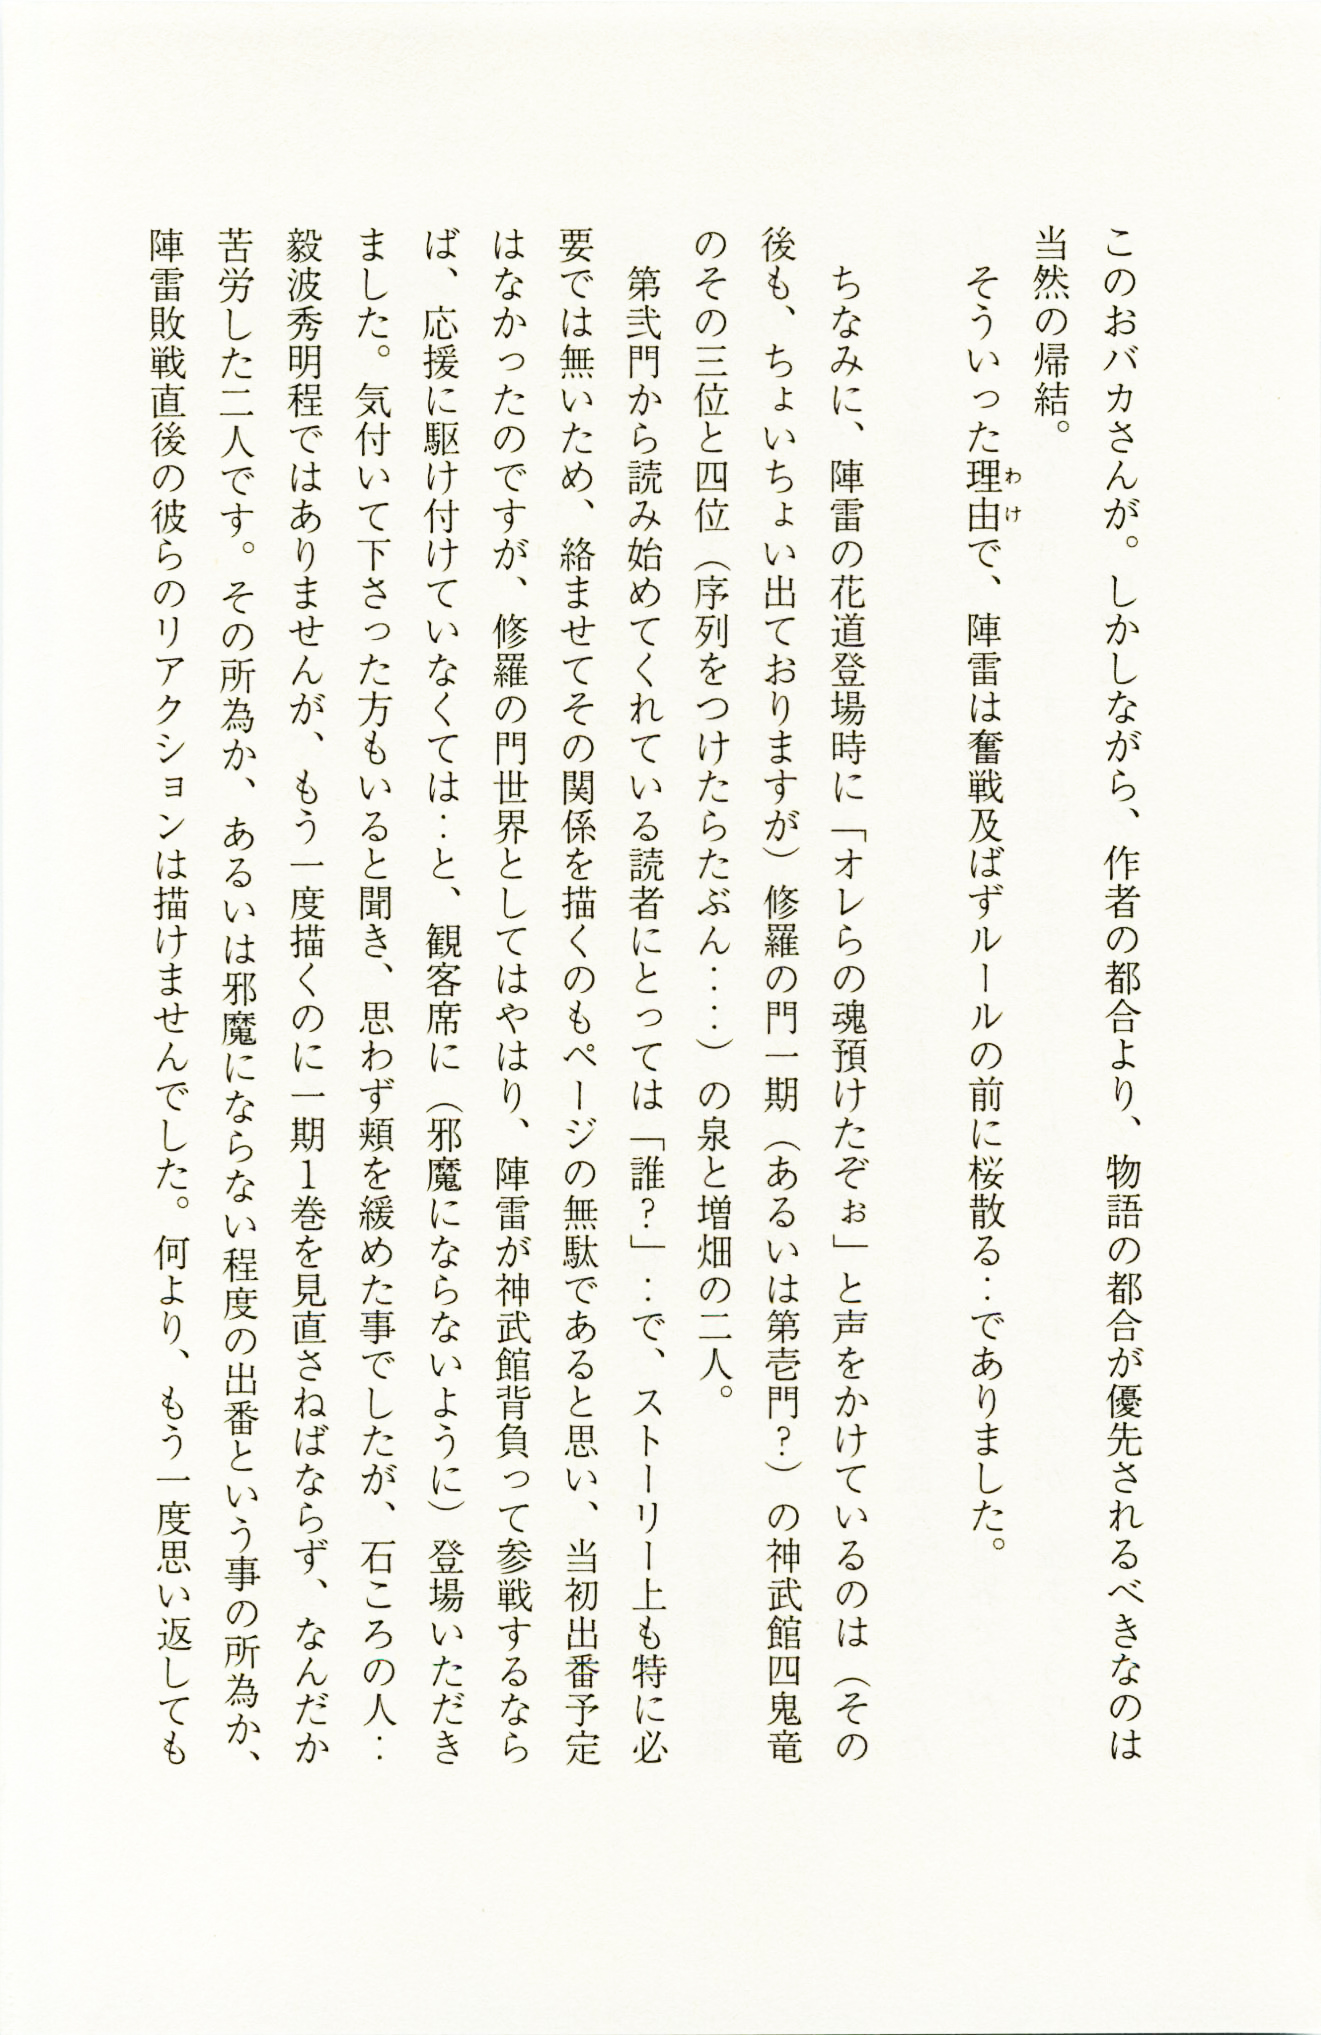 このおバカさんが。しかしながら、作者の都合より、物語の都合が優先されるべきなのは
当然の帰結。
そういった理由で、陣雷は奮戦及ばずルールの前に桜散る‥でありました。
わけ
ちなみに、陣雷の花道登場時に「オレらの魂預けたぞぉ」と声をかけているのは（その
後も、ちょいちょい出ておりますが）修羅の門一期（あるいは第壱門？）の神武館四鬼竜
のその三位と四位（序列をつけたらたぶん‥‥）の泉と増畑の二人。
第弐門から読み始めてくれている読者にとっては「誰？」‥で、ストーリー上も特に必
要では無いため、絡ませてその関係を描くのもページの無駄であると思い、当初出番予定
はなかったのですが、修羅の門世界としてはやはり、陣雷が神武館背負って参戦するなら
ば、応援に駆け付けていなくては‥と、観客席に（邪魔にならないように）登場いただき
ました。気付いて下さった方もいると聞き、思わず頬を緩めた事でしたが、石ころの人‥
毅波秀明程ではありませんが、もう一度描くのに一期１巻を見直さねばならず、なんだか
苦労した二人です。その所為か、あるいは邪魔にならない程度の出番という事の所為か、
陣雷敗戦直後の彼らのリアクションは描けませんでした。何より、もう一度思い返しても